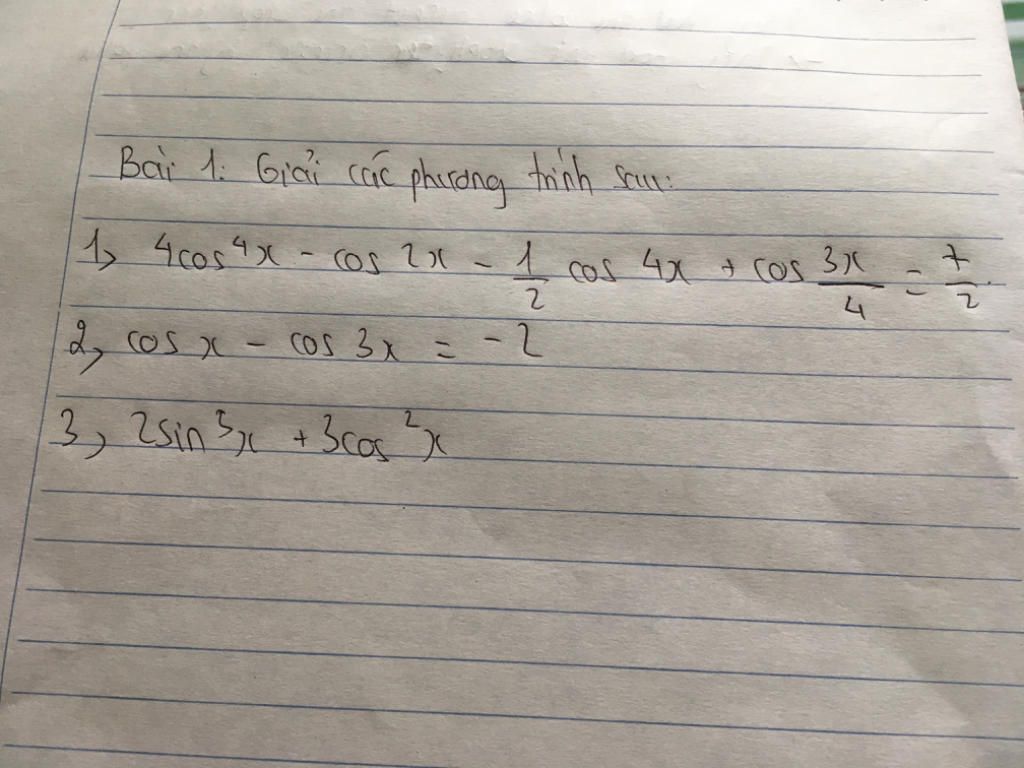 Bài 1: Giải các phương trình sau:
1, 4cos⁴x - cos 2x - 1/2 cos 4x + cos 3x/4 = 7/2.
2, cos x - cos 3x = -2
3, 2sin⁵x + 3cos²x